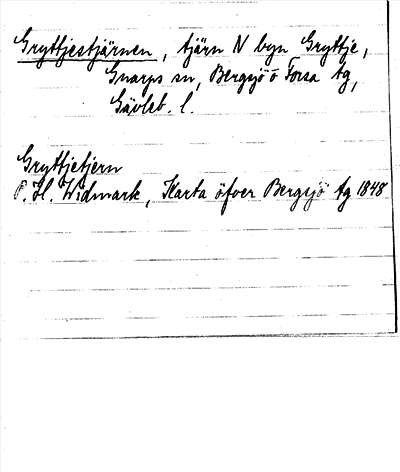 Gryttjestjärnen, tjärn N byn Gryttje,
Gnarps sn, Bergsjö o Forsa tg,
Gävleb. l.
Gryttjetjern
P. H. Widmark, Karta öfver Bergsjö tg 1848